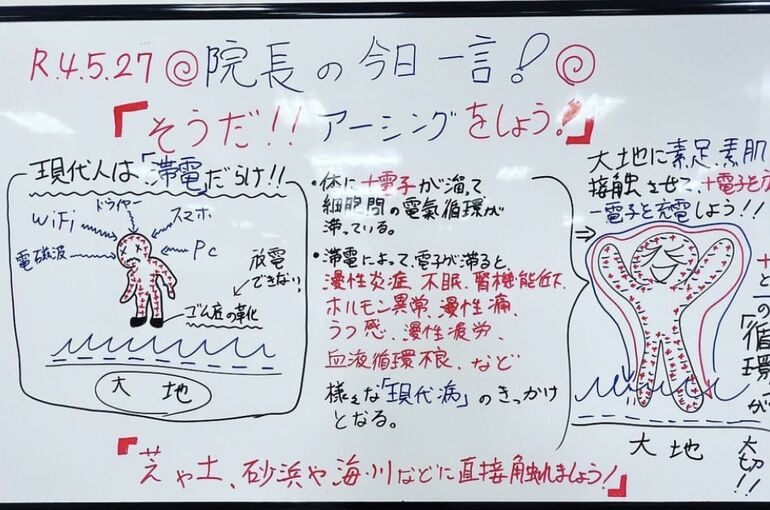 R.4.5.27 院長の今日一言!
「そうだ!! アーシングをしよう!」
現代人は「滞電」だらけ!!
ドライヤー
WiFi
スマホ
電磁波
PC
放電
できない
ゴム底の靴
大地
・体に+電子が溜って
細胞間の電氣循環が
滞っている。
・滞電によって、電子が滞ると、
慢性炎症、不眠、腎機能低下、
ホルモン異常、慢性痛、
うつ感、慢性疲労、
血液循環不良、など
様々な「現代病」のきっかけ
となる。
大地に素足、素肌
接触させて、+電子を
-電子を充電しよう!!
+
と
一
の
「循環」が
大切!!
大地
「芝や土、砂浜や海・川などに直接触れましょう!」